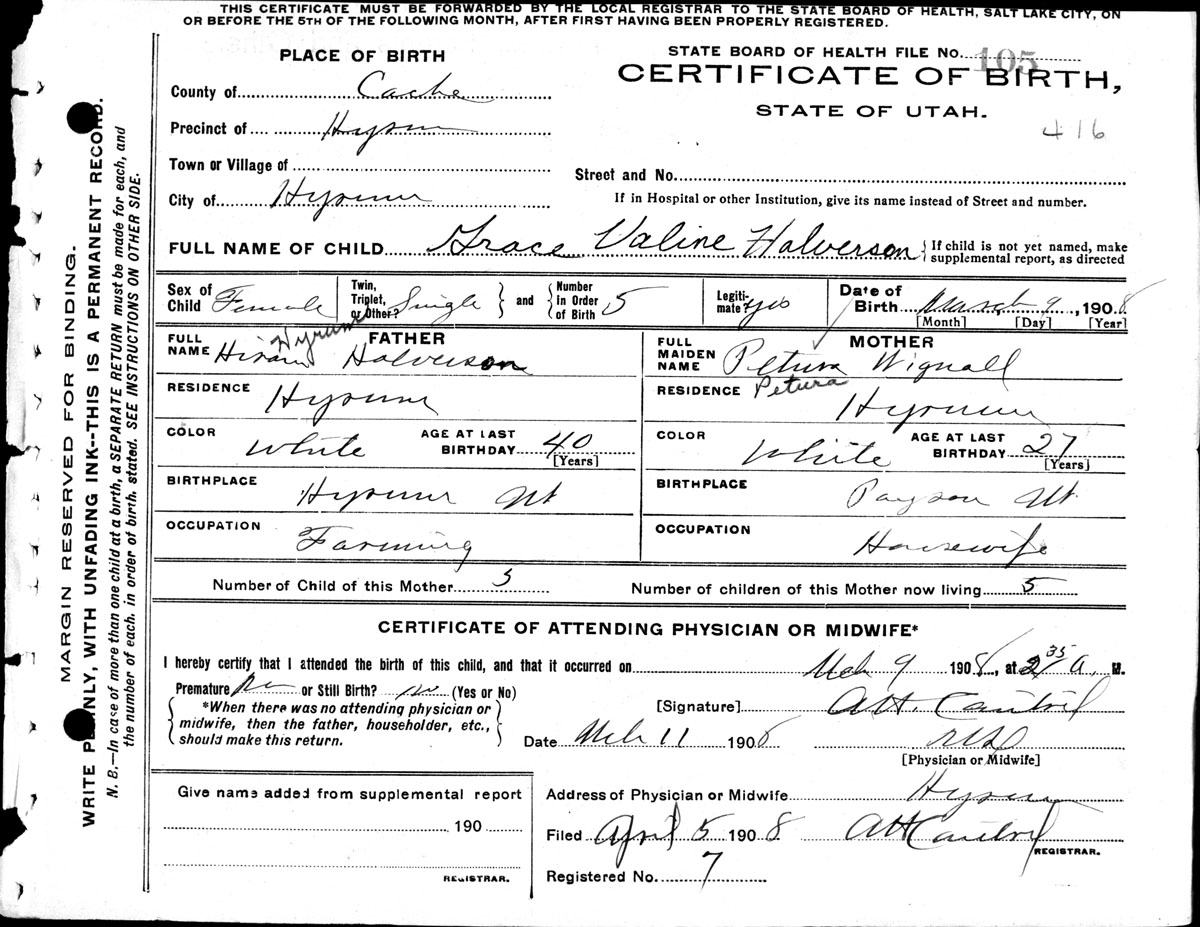 THIS CERTIFICATE MUST BE FORWARDED BY THE LOCAL REGISTRAR TO THE STATE BOARD OF HEALTH, SALT LAKE CITY, ON
OR BEFORE THE 5TH OF THE FOLLOWING MONTH, AFTER FIRST HAVING BEEN PROPERLY REGISTERED.
PLACE OF BIRTH
STATE BOARD OF HEALTH FILE No. 105
CERTIFICATE OF BIRTH,
STATE OF UTAH.
416
County of Cache
Precinct of Hyrum
Town or Village of
Street and No.
City of Hyrum
If in Hospital or other Institution, give its name instead of Street and number.
FULL NAME OF CHILD Grace Valine Halverson { If child is not yet named, make
supplemental report, as directed
Sex of Child Female
Twin, Triplet, or Other? Single } and { Number In Order of Birth 5
Legiti-mate? yes
Date of Birth March 9, 1908
[Month] [Day] [Year]
FATHER
FULL NAME Hiram Halverson
Hyrum
MOTHER
FULL MAIDEN NAME Petura Wignall
Petura
RESIDENCE Hyrum
RESIDENCE Hyrum
COLOR White AGE AT LAST BIRTHDAY 40 [Years]
COLOR White AGE AT LAST BIRTHDAY 27 [Years]
BIRTHPLACE Hyrum Ut
BIRTHPLACE Payson Ut
OCCUPATION Farming
OCCUPATION Housewife
Number of Child of this Mother 5 Number of children of this Mother now living 5
CERTIFICATE OF ATTENDING PHYSICIAN OR MIDWIFE*
I hereby certify that I attended the birth of this child, and that it occurred on Mch 9 1908, at 2 35 a. M.
Premature no or Still Birth? no (Yes or No)
*When there was no attending physician or
midwife, then the father, householder, etc.,
should make this return.
[Signature] A H.
Date Mch 11 1908 MD
[Physician or Midwife]
Give name added from supplemental report
190
REGISTRAR.
Address of Physician or Midwife Hyrum
Filed April 5 1908 AH
REGISTRAR.
Registered No. 7
MARGIN RESERVED FOR BINDING.
WRITE PLAINLY, WITH UNFADING INK--THIS IS A PERMANENT RECORD.
N. B.--In case of more than one child at a birth, a SEPARATE RETURN must be made for each, and
the number of each, in order of birth, stated. SEE INSTRUCTIONS ON OTHER SIDE.